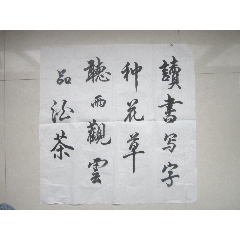 讀書写字
种花草
聽雨觀雲
品酒茶